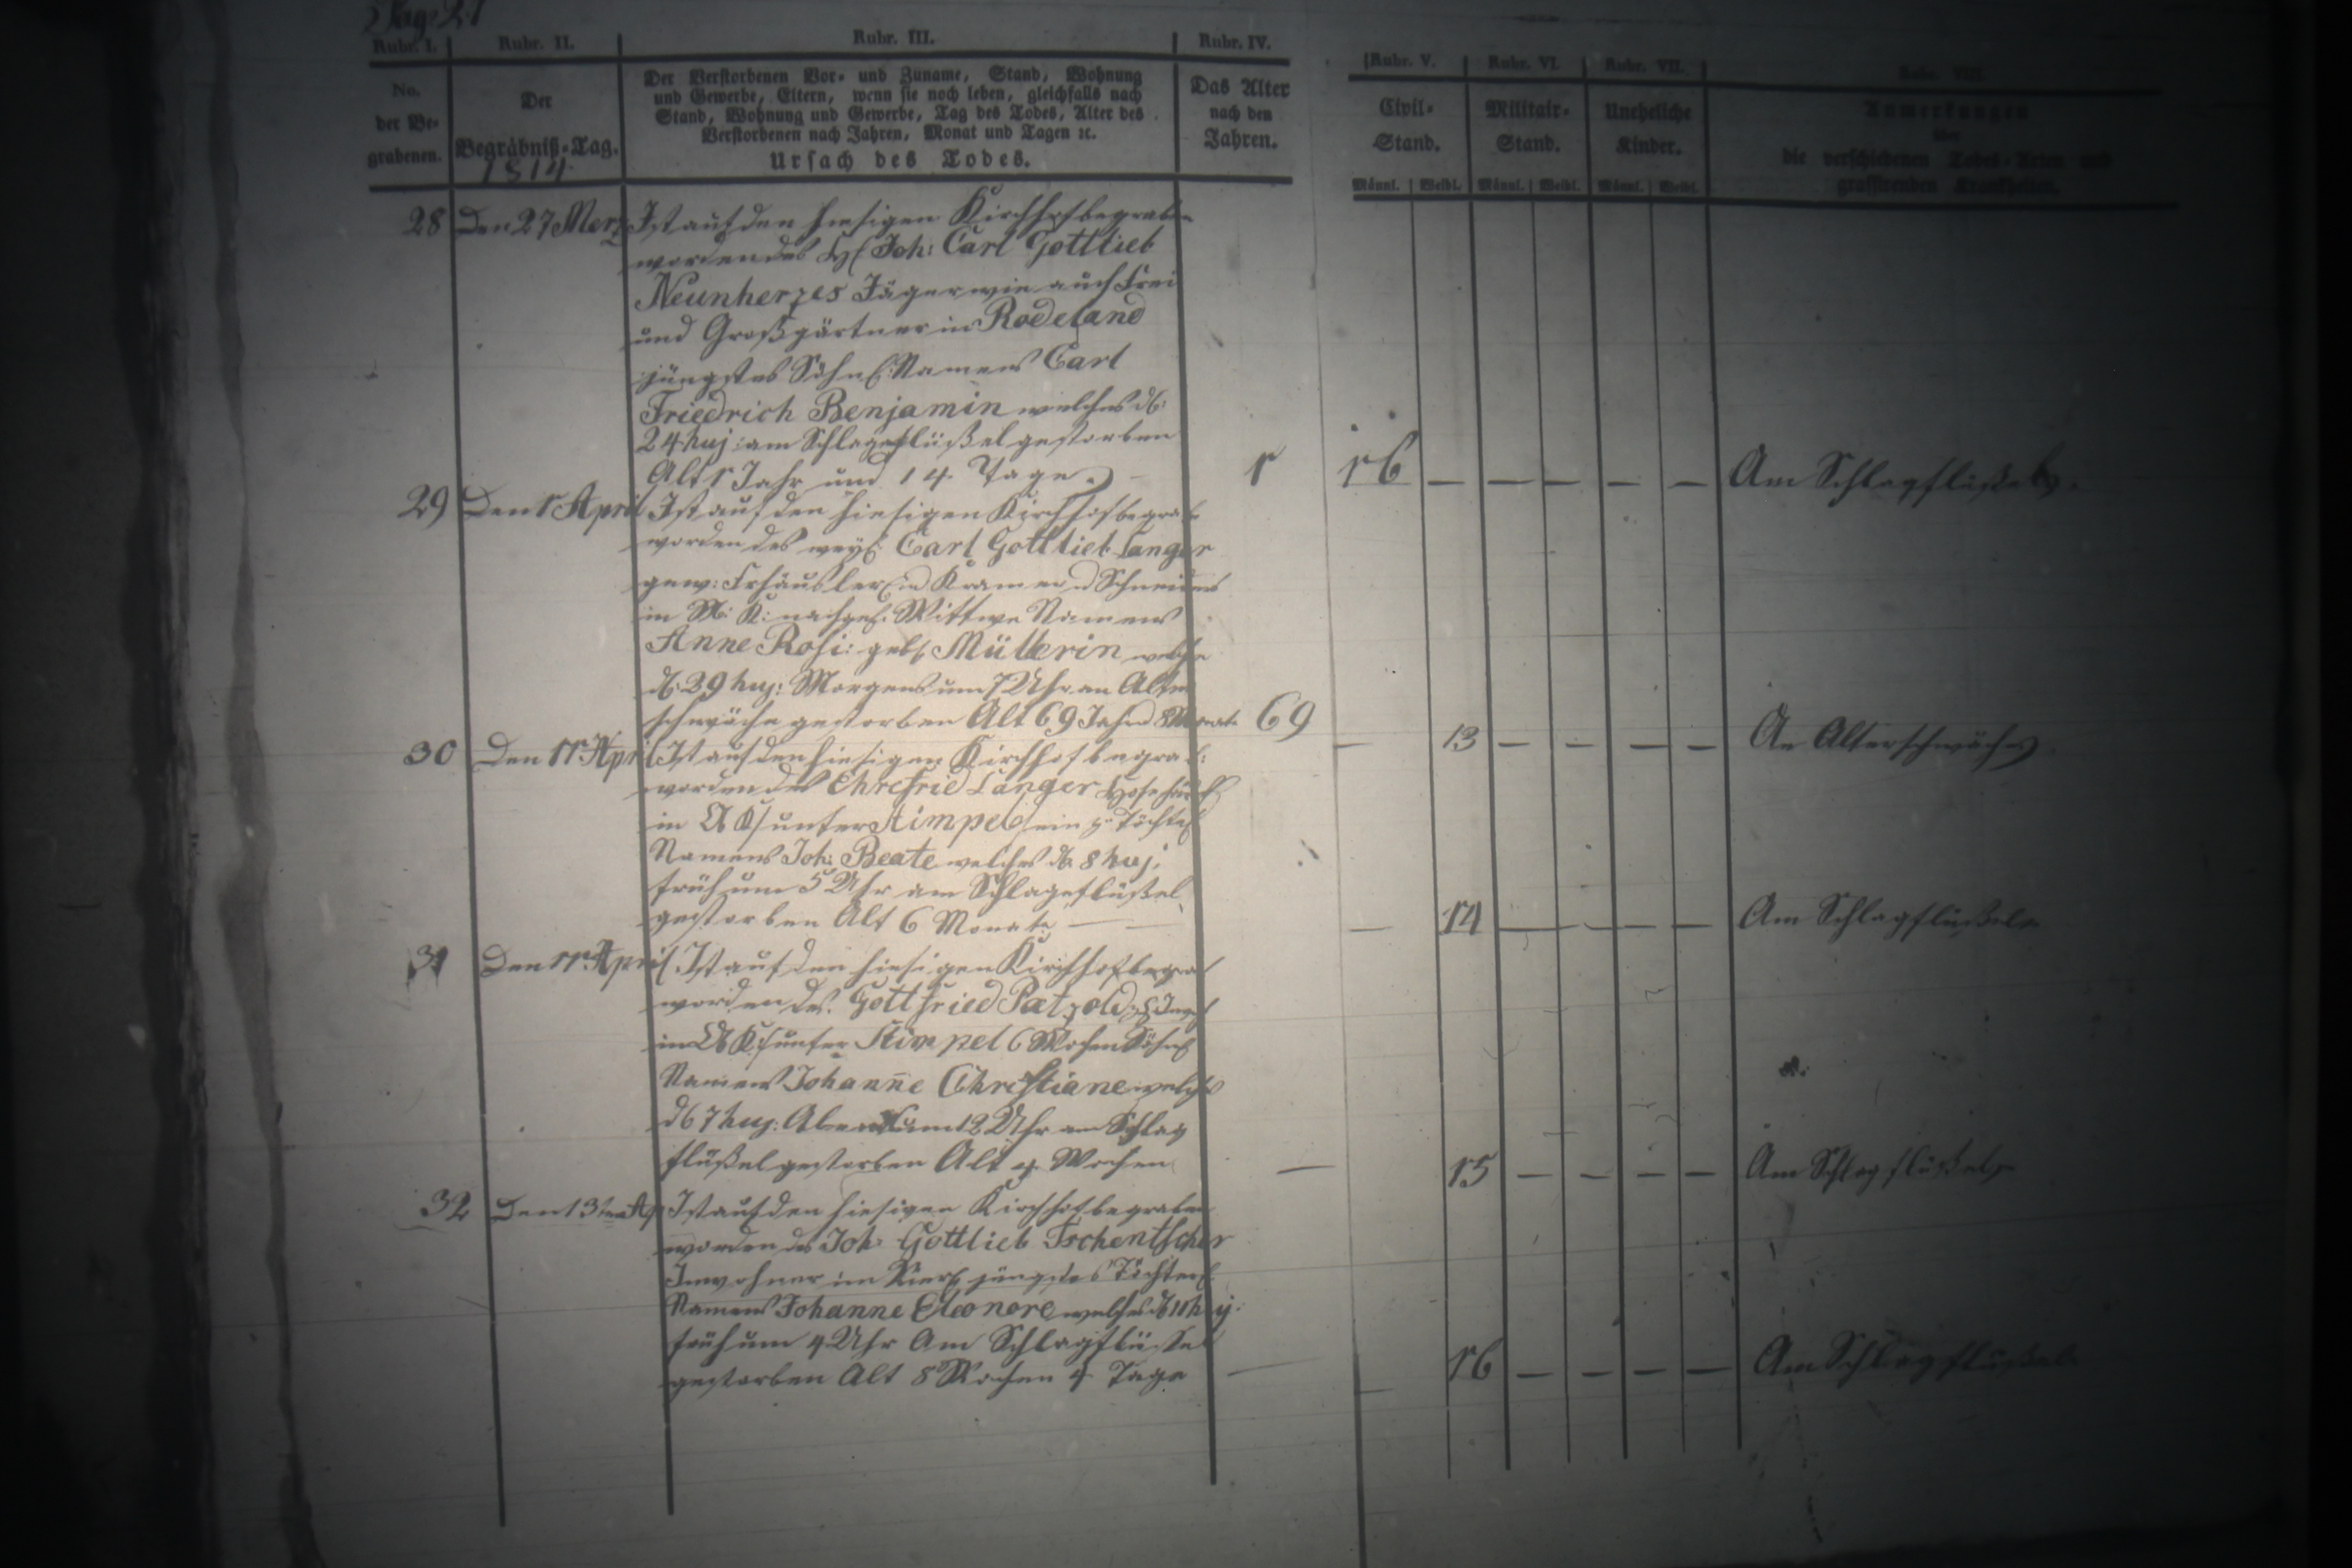 Pag. 21
Rubr. I. Rubr. II. Rubr. III. Rubr. IV. Rubr. V. Rubr. VI. Rubr. VII. Rubr. VIII.
No. der Be- grabenen.
Der Begräbniß-Tag.
1814
Der Verstorbenen Vor- und Zuname, Stand, Wohnung
und Gewerbe, Eltern, wenn sie noch leben, gleichfalls nach
Stand, Wohnung und Gewerbe, Tag des Todes, Alter des
Verstorbenen nach Jahren, Monat und Tagen ꝛc.
Ursach des Todes.
Das Alter nach den Jahren.
Civil- Stand.
Militair- Stand.
Uneheliche Kinder.
Anmerkungen
über
die verschiedenen Todes-Arten und
grassirenden Krankheiten.
Männl. Weibl. Männl. Weibl. Männl. Weibl.
28 Den 27 Merz Ist auf den hiesigen Kirchhof begraben
worden des Joh: Carl Gottlieb
Neunherzes Jäger wie auch Frei
und Großgärtner in Rodeland
jüngstes Söhnl. Namens Carl
Friedrich Benjamin welches d:
24 huj: am Schlagflüßel gestorben
Alt 1 Jahr und 14 Tage 1 16 — — — — — Am Schlagflüßel
29 Den 1 April Ist auf den hiesigen Kirchhof begrab
worden des weyl: Carl Gottlieb Langer
gew: Frhäusler Kramer Schneiders
in K: nachgel. Wittwe Namens
Anne Rosi: geb. Müllerin welche
d. 29 huj: Morgens um 7 Uhr an Alter
schwäche gestorben Alt 69 Jahr 8 Monate 69 — 13 — — — — An Alterschwäche
30 Den 11 April Ist auf den hiesigen Kirchhof begrab:
worden des Ehrefried Langer
in unter Kimpel ein Töchterl
Namens Joh: Beate welches d. 8 huj:
früh um 5 Uhr am Schlagflüßel
gestorben Alt 6 Monate — — 14 — — — — Am Schlagflüßel
31 Den 11 April Ist auf den hiesigen Kirchhof begrab
worden des Gottfried Pätzold
in unter Kimpel 6 Wochen
Namens Johanne Christiane welches
d 7 huj: Abends um 12 Uhr am Schlag
flüßel gestorben Alt 4 Wochen — 15 — — — — Am Schlagflüßel
32 Den 13ten Ap Ist auf den hiesigen Kirchhof begraben
worden des Joh: Gottlieb Tschentscher
Inwohner im jüngstes Töchterl
Namens Johanne Eleonore welches d 11 huj:
früh um 4 Uhr Am Schlagflüßel
gestorben Alt 8 Wochen 4 Tage — — 16 — — — — Am Schlagflüßel